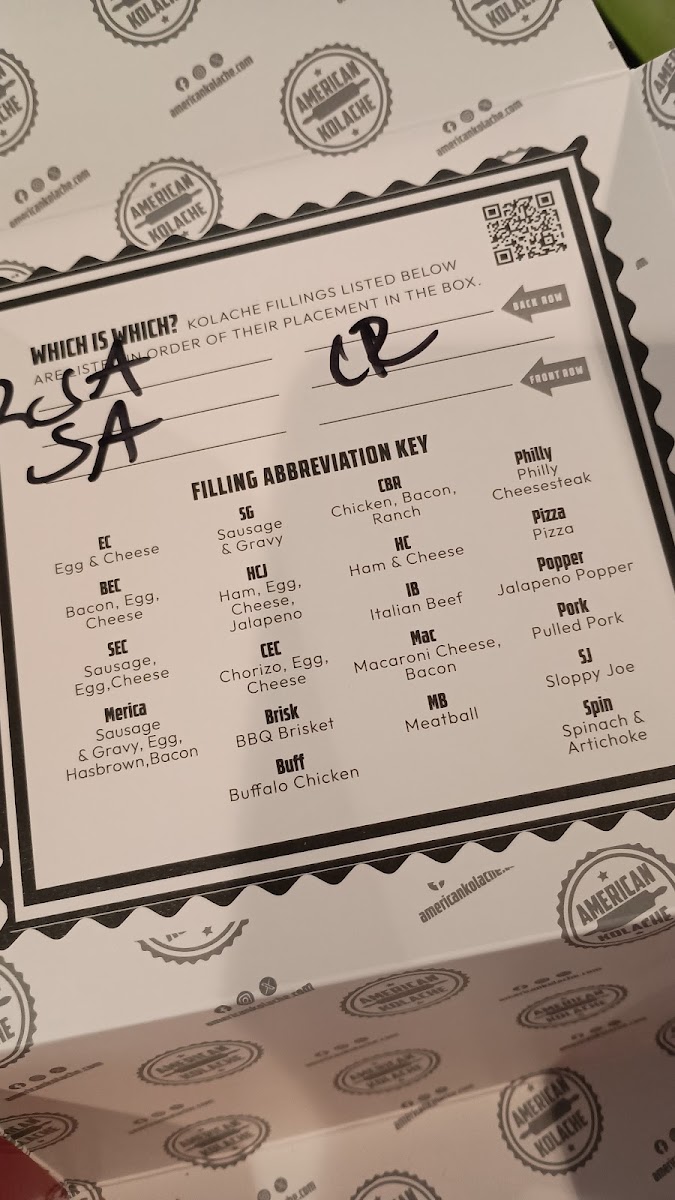 AMERICAN KOLACHE
americankolache.com
AMERICAN KOLACHE
americankolache.com
americankolache.com
AMERICAN KOLACHE
WHICH IS WHICH? KOLACHE FILLINGS LISTED BELOW
ARE LISTED IN ORDER OF THEIR PLACEMENT IN THE BOX.
BACK ROW
SA
CR
FRONT ROW
SA
FILLING ABBREVIATION KEY
EC
Egg & Cheese
BEC
Bacon, Egg,
Cheese
SEC
Sausage,
Egg,Cheese
Merica
Sausage
& Gravy, Egg,
Hasbrown,Bacon
SG
Sausage
& Gravy
HCJ
Ham, Egg,
Cheese,
Jalapeno
CEC
Chorizo, Egg,
Cheese
Brisk
BBQ Brisket
Buff
Buffalo Chicken
CBR
Chicken, Bacon,
Ranch
HC
Ham & Cheese
IB
Italian Beef
Mac
Macaroni Cheese,
Bacon
MB
Meatball
Philly
Philly
Cheesesteak
Pizza
Pizza
Popper
Jalapeno Popper
Pork
Pulled Pork
SJ
Sloppy Joe
Spin
Spinach &
Artichoke
americankolache.com
AMERICAN KOLACHE
AMERICAN KOLACHE
AMERICAN KOLACHE
AMERICAN KOLACHE
AMERICAN KOLACHE
AMERICAN KOLACHE